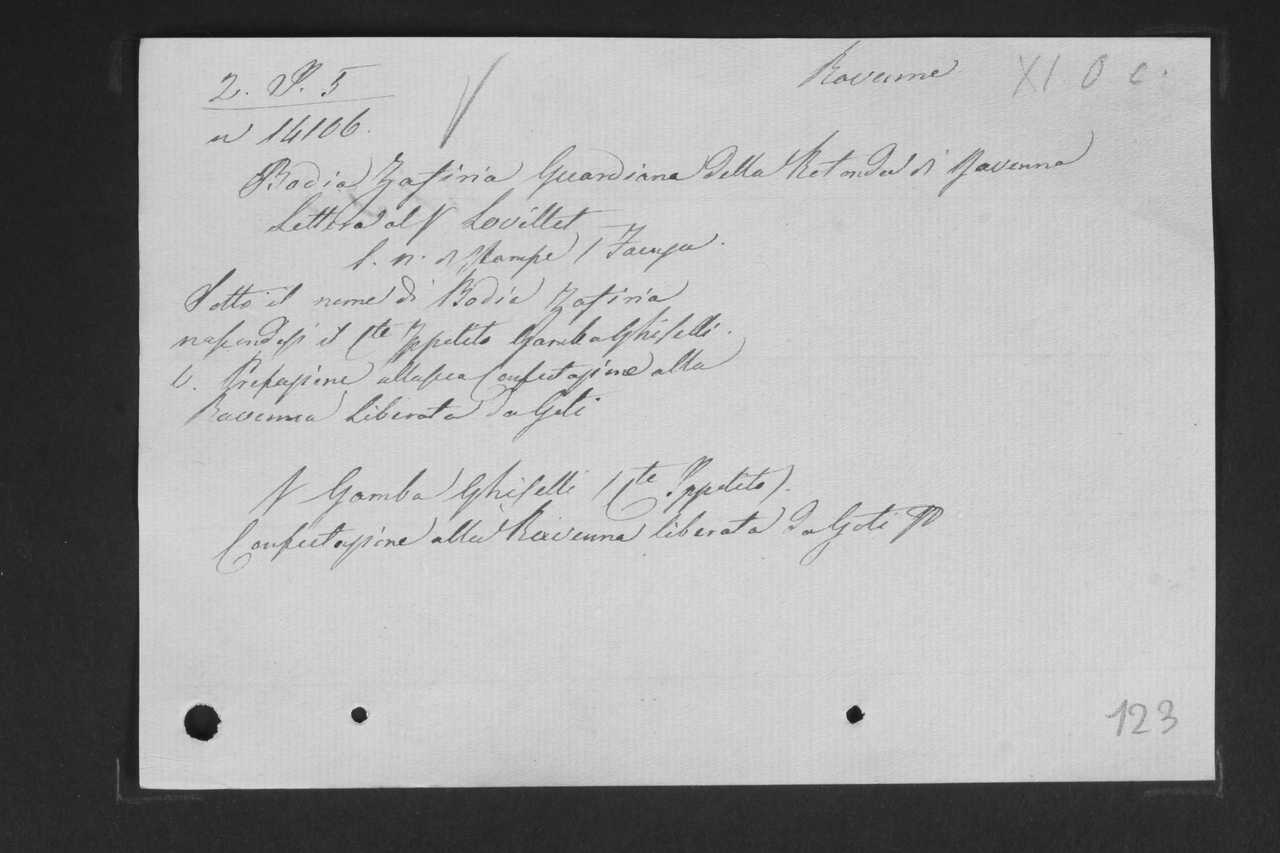 2. P. 5
Ravenna XI O c.
n 14106.
Bodia Zafiria Guardiana della Rotonda di Ravenna
Lettera al V Lovillet
s. n. di stampe / Faenza.
Sotto il nome di Bodia Zafiria
nascondesi il Cte Ippolito Gamba Ghiselli.
V. Prefazione alla sua Confutazione alla
Ravenna liberata da Goti
V Gamba Ghiselli (Cte Ippolito).
Confutazione alla Ravenna liberata da Goti
123